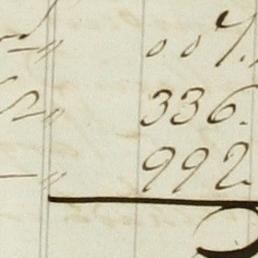 „ 007.„
2„ 336.
–„ 992